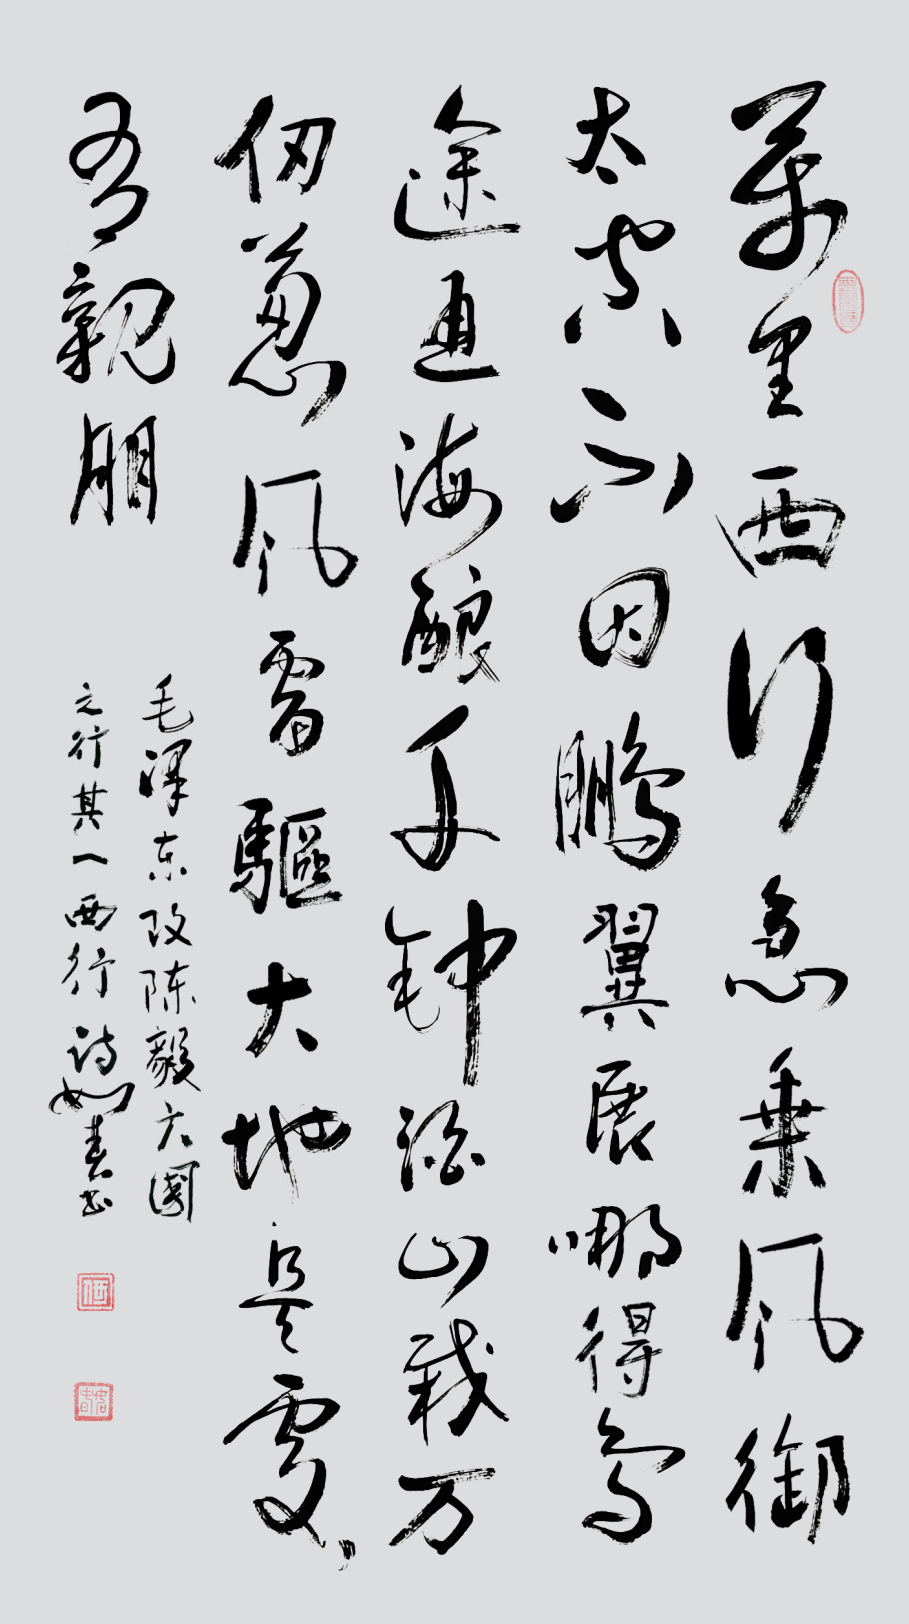 萬里西行急乘风御
太空不因鹏翼展哪得鸟
途通海酿千钟酒山栽万
仞葱风雷驅大地是處
有親朋
毛泽东改陈毅六國
之行其一西行诗如春书